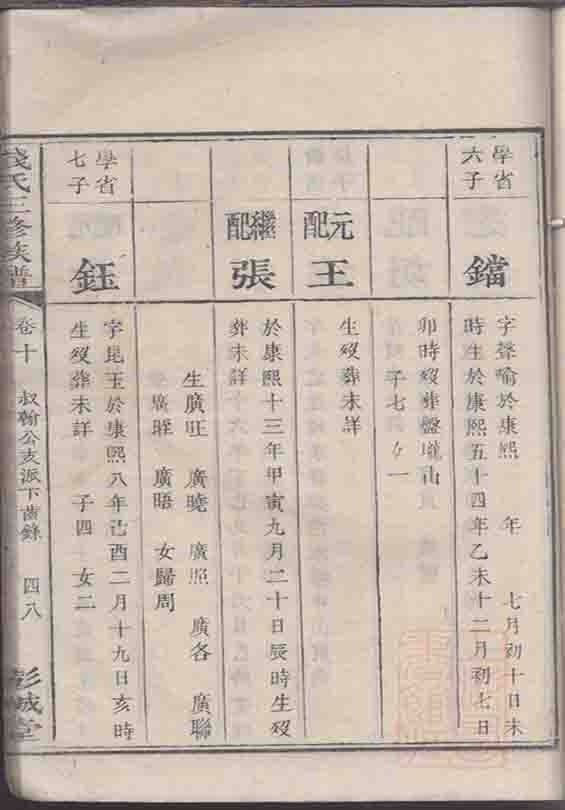 學省
六子
鐺
字聲喻於康熙 年 七月初十日未
時生於康熙五十四年乙未十二月初七日
卯時歿葬盤壠山
子七 女一
元配
王
生歿葬未詳
繼配
張
於康熙十三年甲寅九月二十日辰時生歿
葬未詳
生廣旺 廣曉 廣照 廣各 廣聯
廣暀 廣晤 女歸周
學省
七子
鈺
字昆玉於康熙八年己酉二月十九日亥時
生歿葬未詳 子四 女二
錢氏三修族譜
卷十 叔翰公支派下齒錄 四八
彭城堂